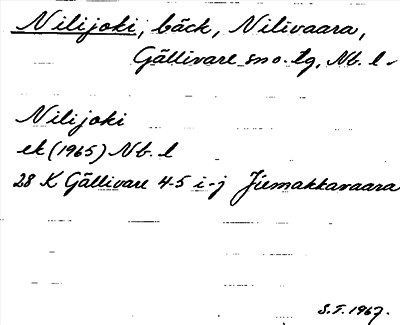 Nilijoki, bäck, Nilivaara,
Gällivare sn o. tg, Nb. l.
Nilijoki
ek (1965) Nb. l
28 K Gällivare 4-5 i-j Jiemakkavaara
S.F. 1967.